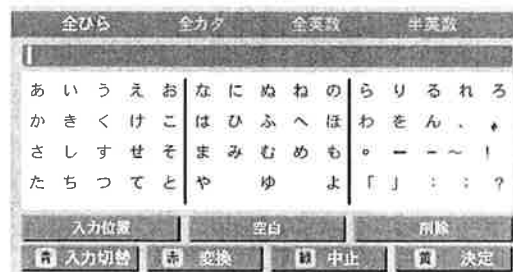 全ひら 全カタ 全英数 半英数
あ い う え お な に ぬ ね の ら り る れ ろ
か き く け こ は ひ ふ へ ほ わ を ん 、
さ し す せ そ ま み む め も 。 ー － ～ ！
た ち つ て と や ゆ よ 「 」 ： ； ？
入力位置 空白 削除
青 入力切替 赤 変換 緑 中止 黄 決定